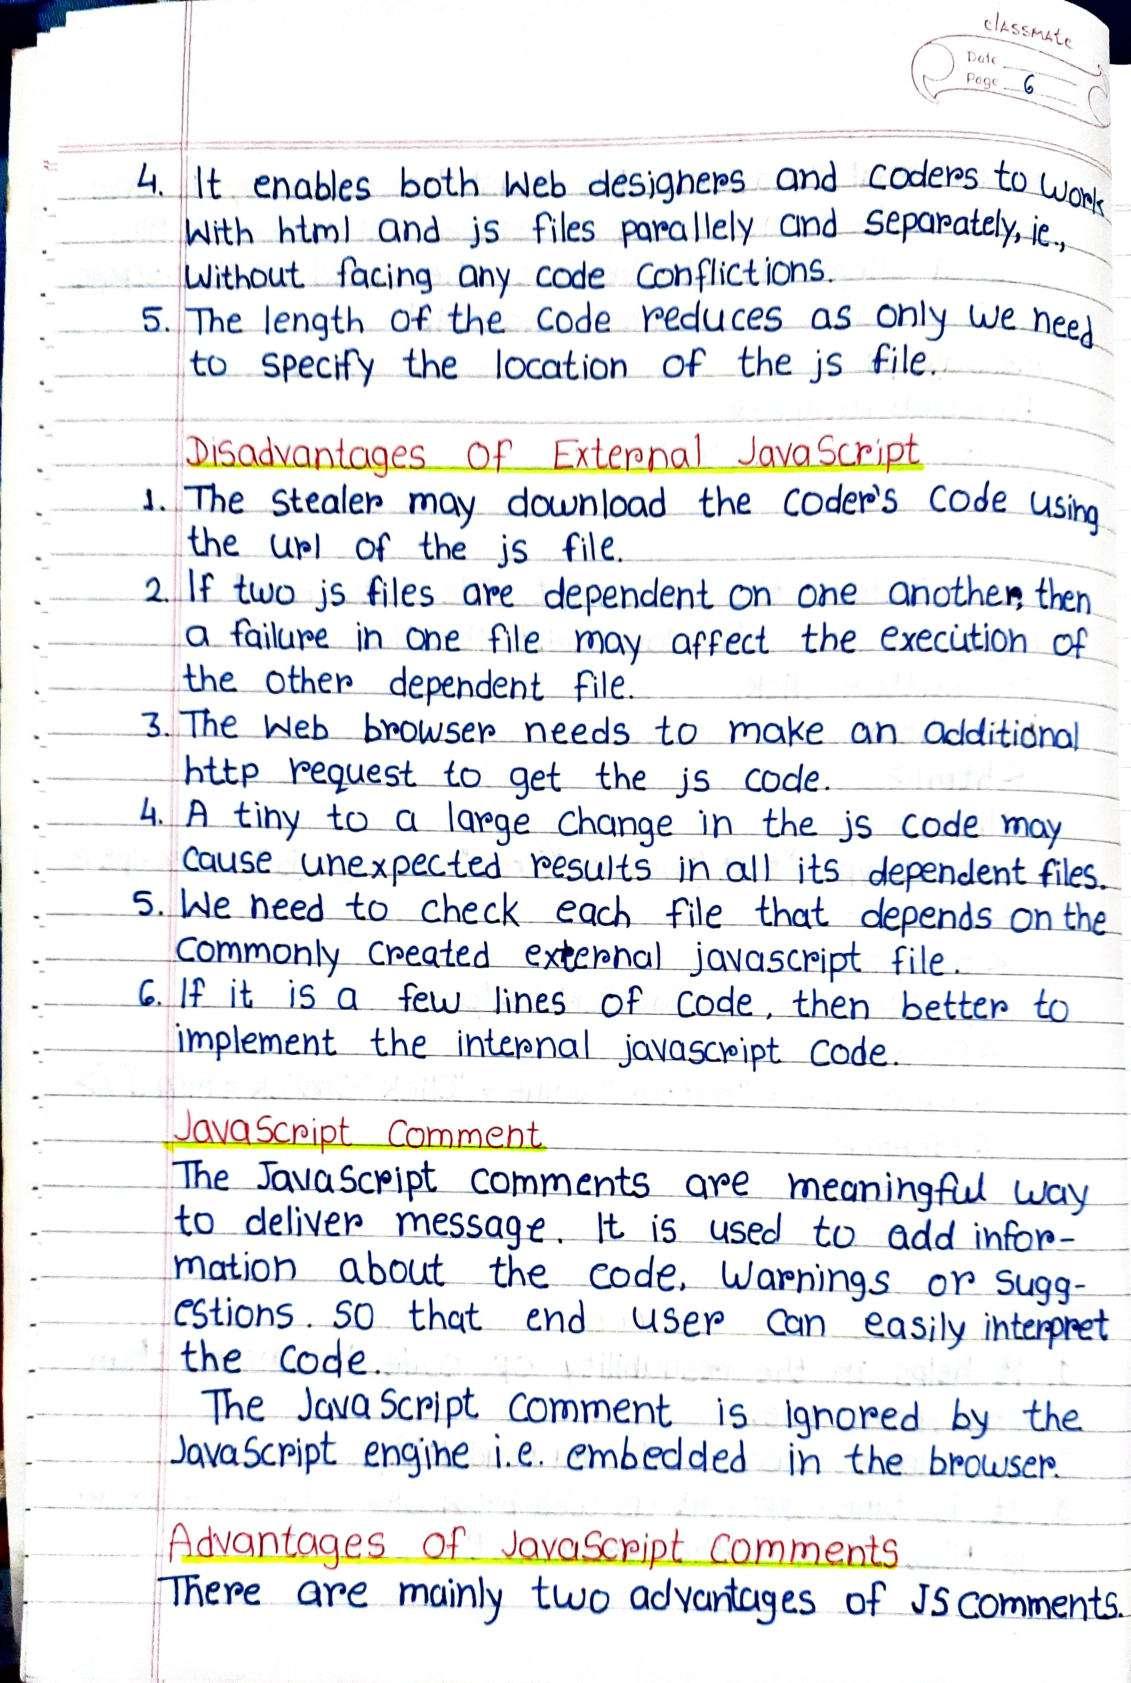 classmate
Date
Page 6
4. It enables both web designers and coders to work
with html and js files parallely and separately, ie.,
without facing any code conflictions.
5. The length of the code reduces as only we need
to specify the location of the js file.
Disadvantages of External JavaScript
1. The stealer may download the coder's code using
the url of the js file.
2. If two js files are dependent on one another, then
a failure in one file may affect the execution of
the other dependent file.
3. The web browser needs to make an additional
http request to get the js code.
4. A tiny to a large change in the js code may
cause unexpected results in all its dependent files.
5. We need to check each file that depends on the
commonly created external javascript file.
6. If it is a few lines of code, then better to
implement the internal javascript code.
JavaScript Comment
The JavaScript comments are meaningful way
to deliver message. It is used to add infor-
mation about the code, warnings or sugg-
estions. so that end user can easily interpret
the code.
The JavaScript comment is ignored by the
JavaScript engine i.e. embedded in the browser.
Advantages of JavaScript comments
There are mainly two advantages of JS comments.